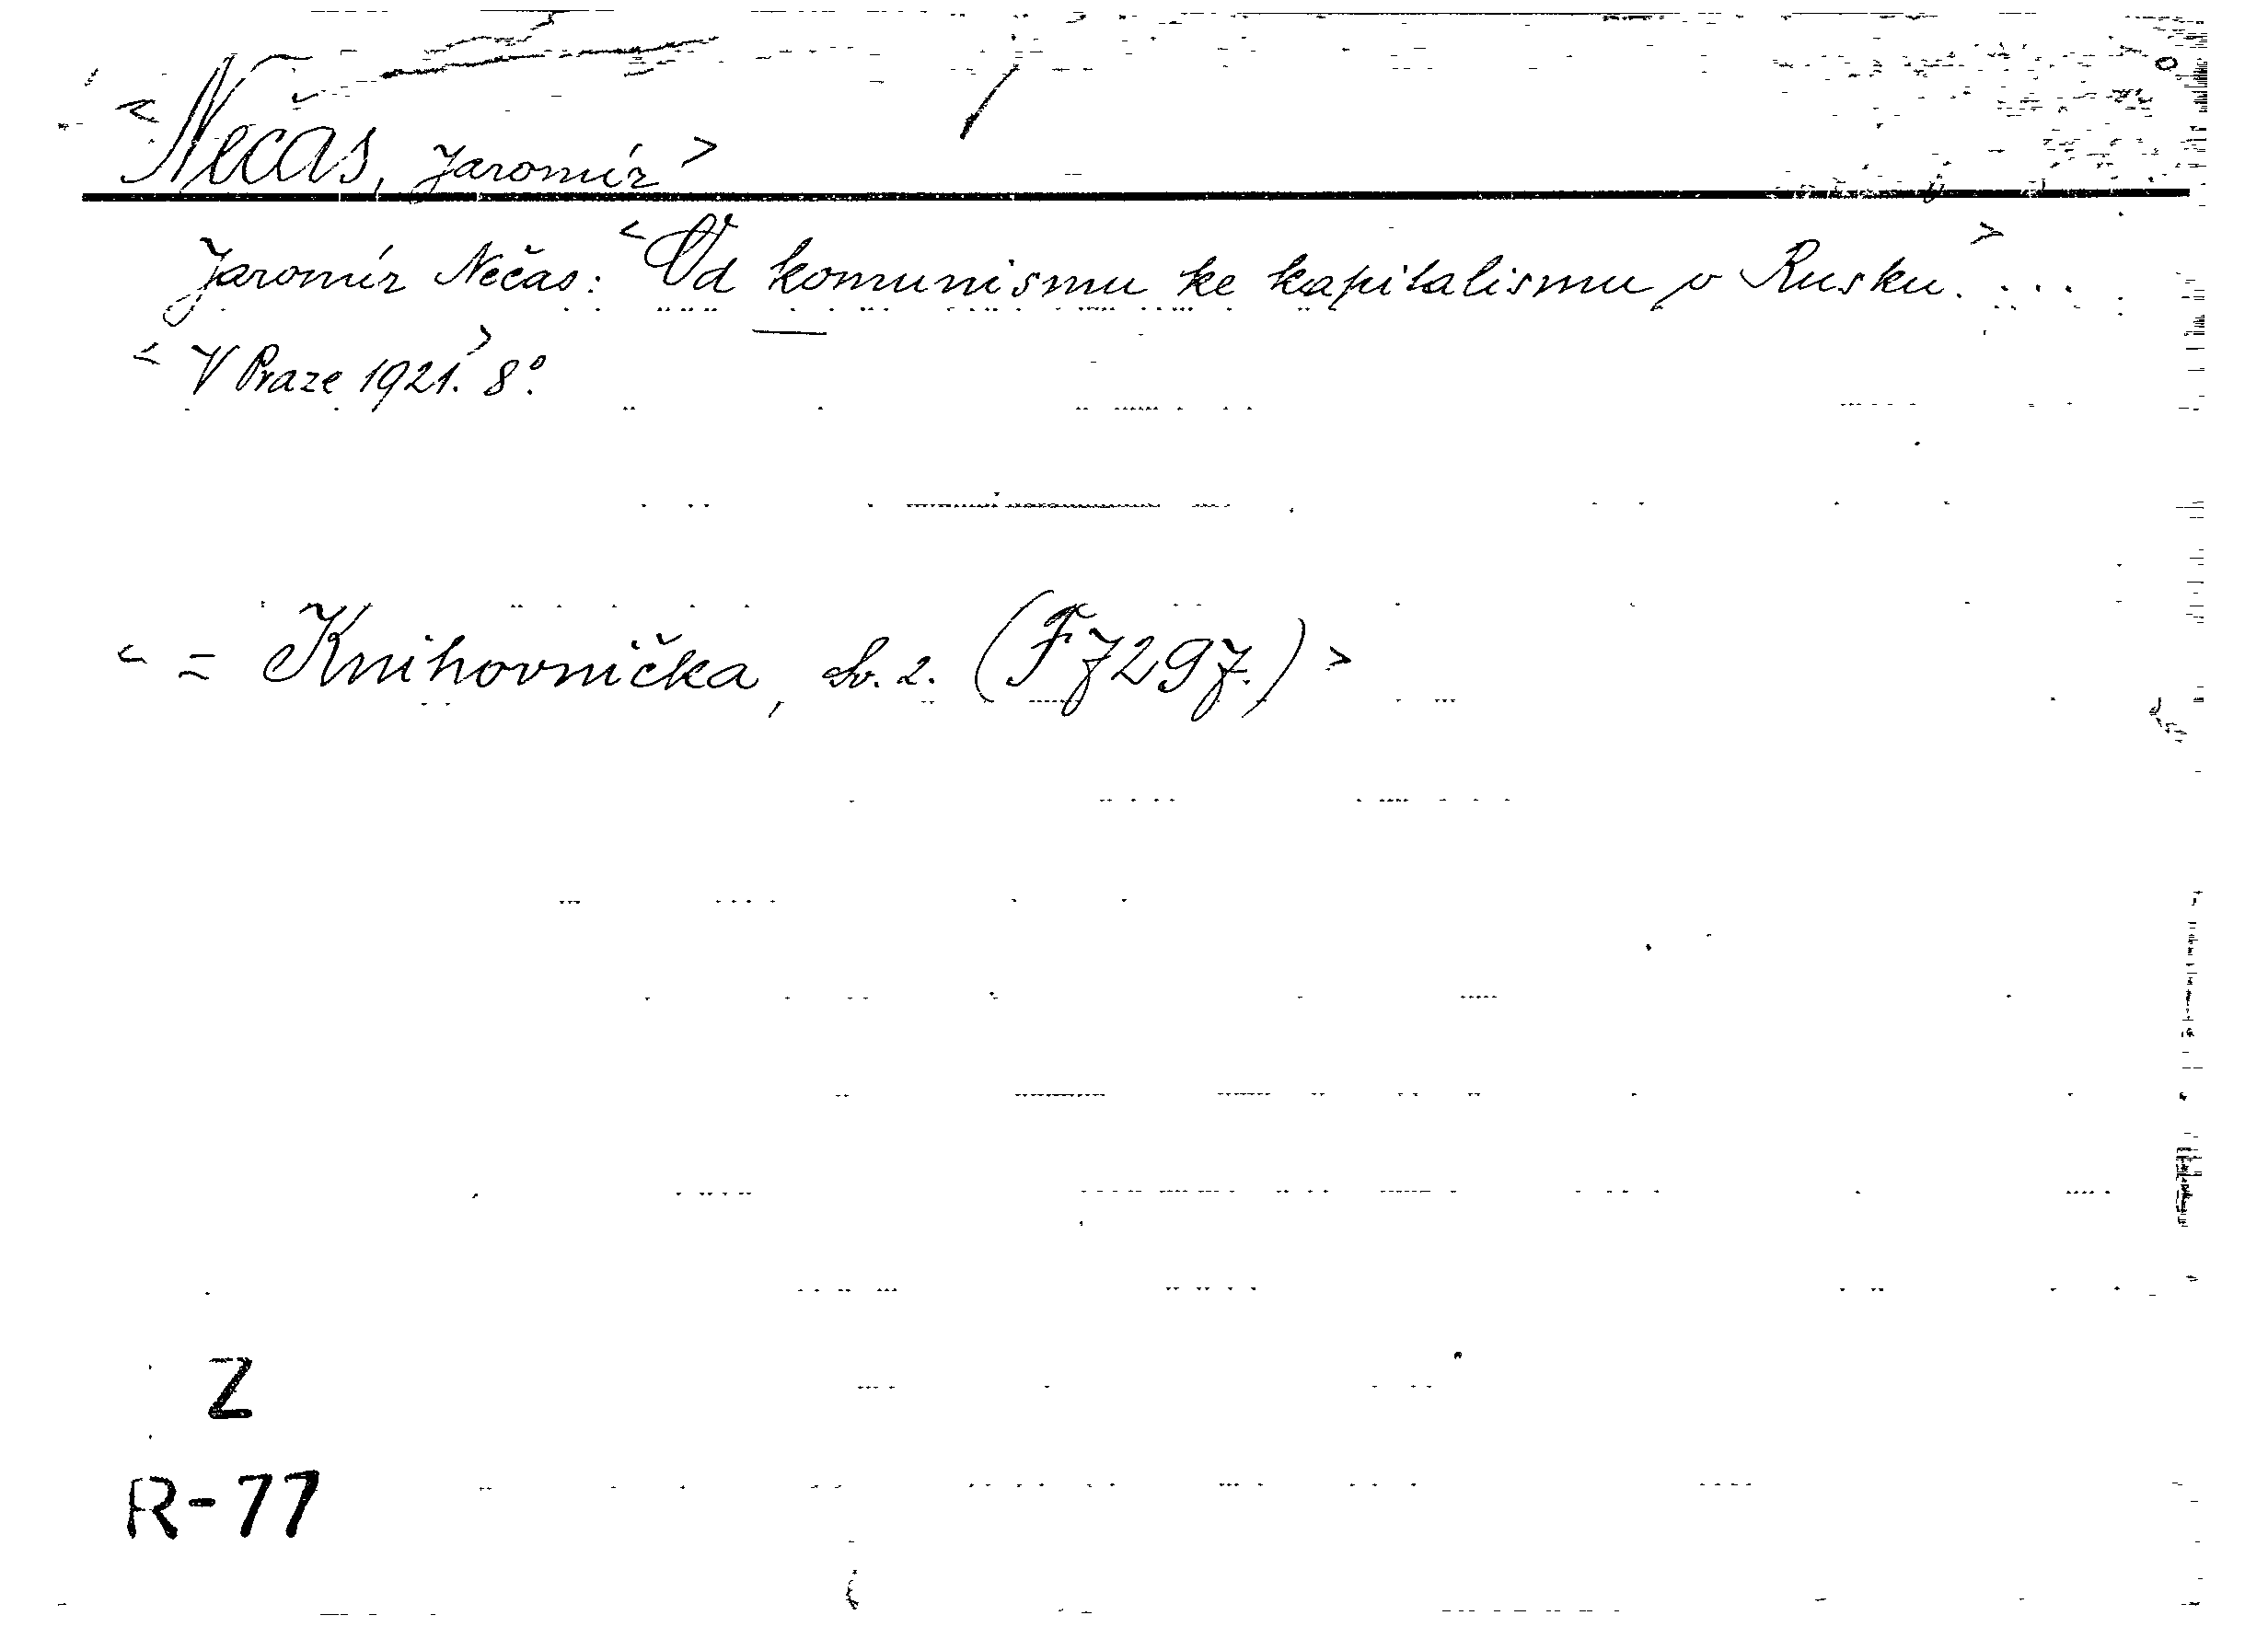 <Nečas, Jaromír>
Jaromír Nečas: <Od komunismu ke kapitalismu v Rusku.> ...
<V Praze 1921.> 8°.
< = Knihovnička, sv. 2. (F 7297.) >
Z
R-77